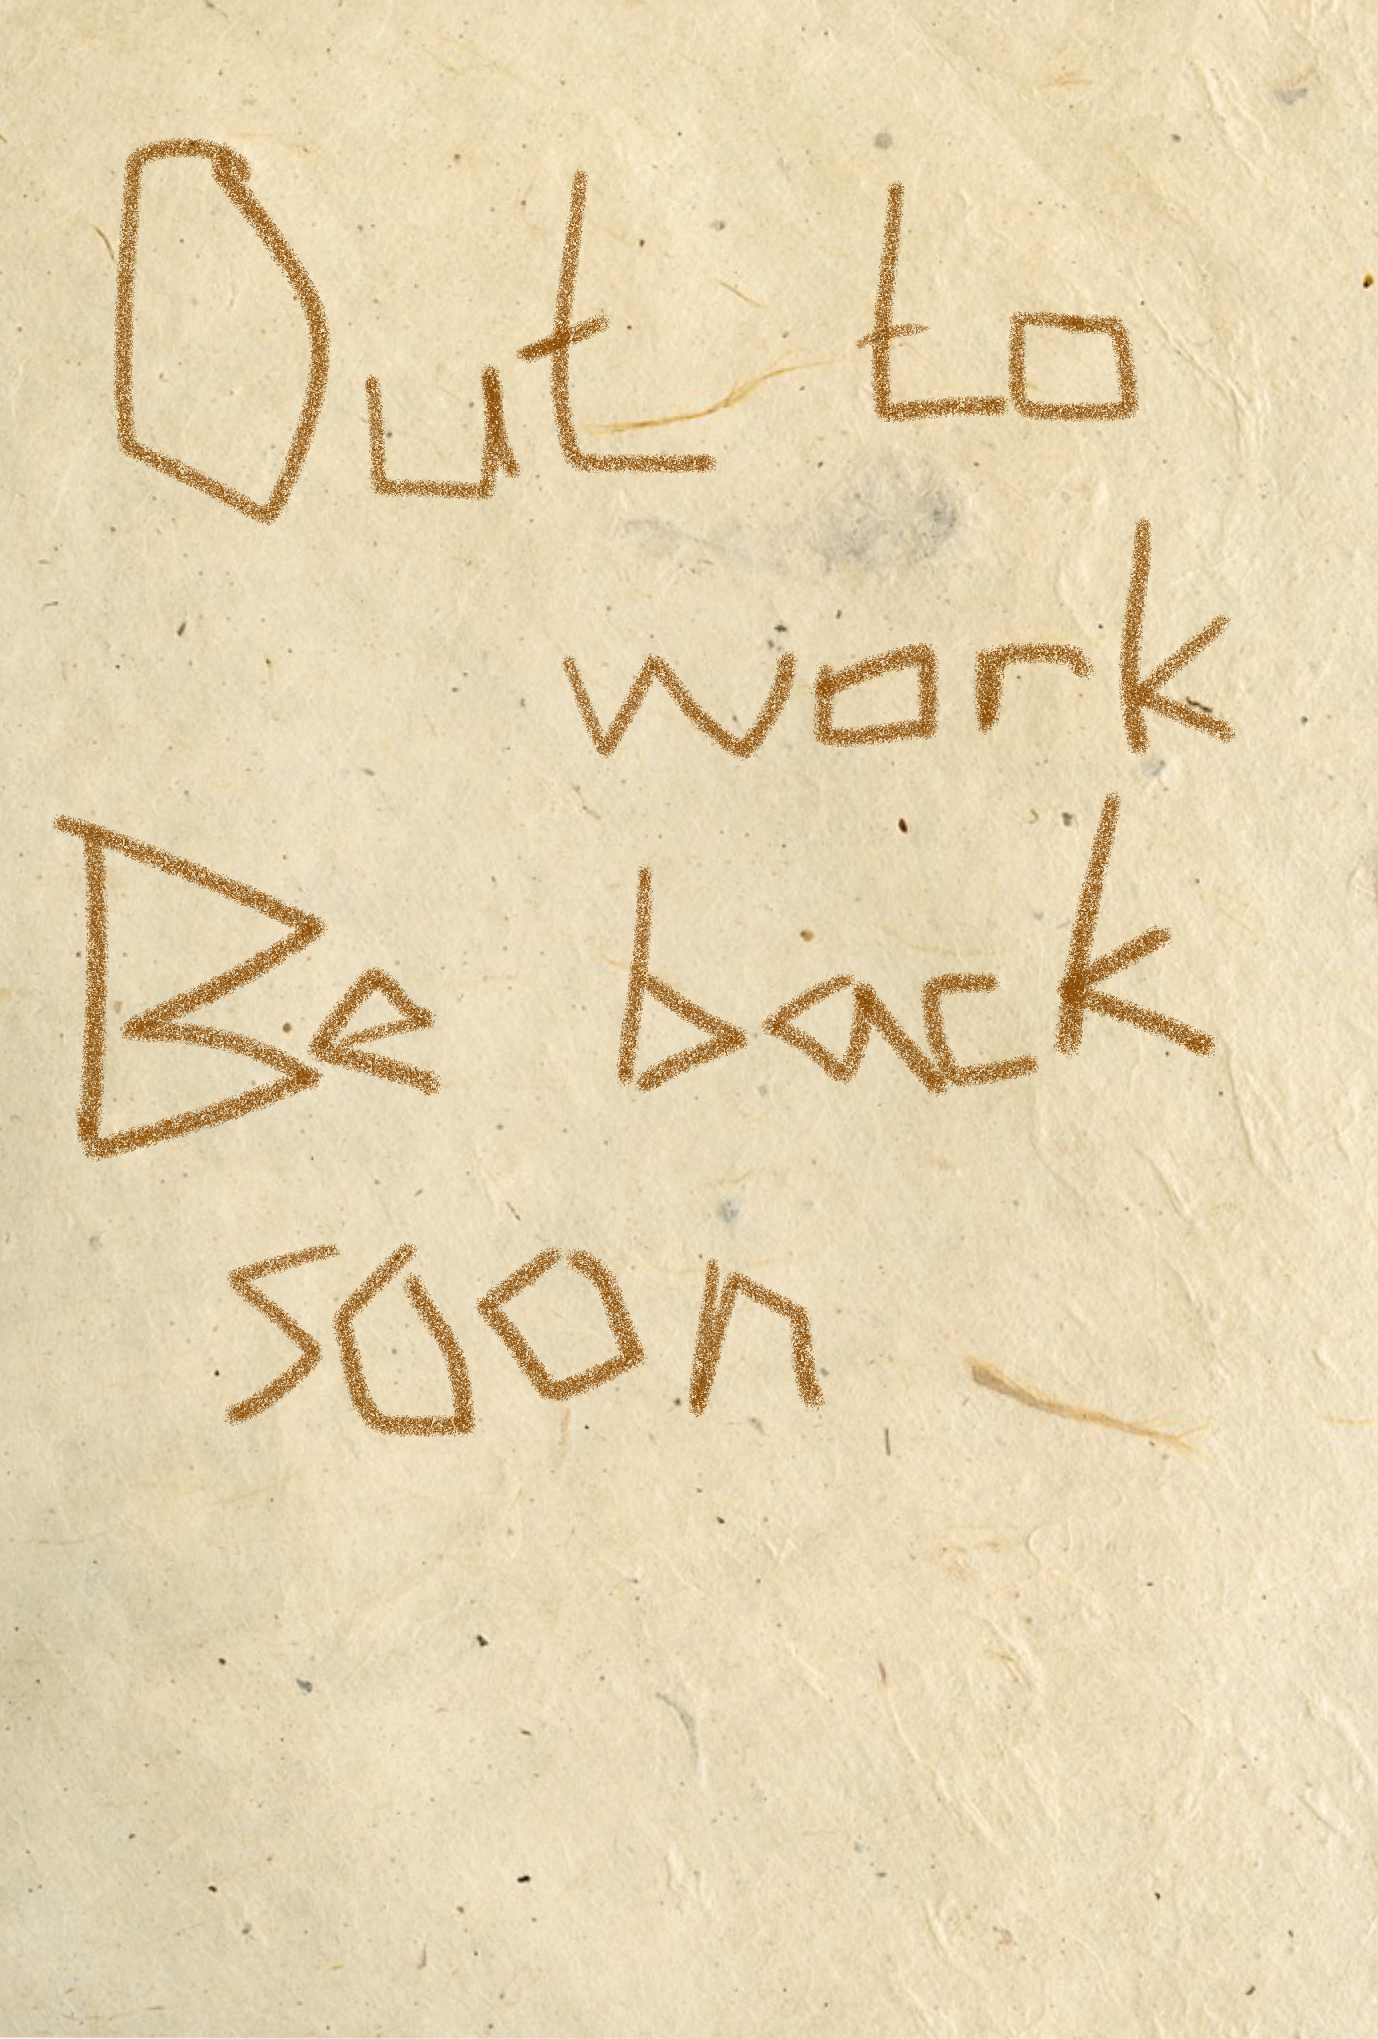 Out to
work
Be back
soon